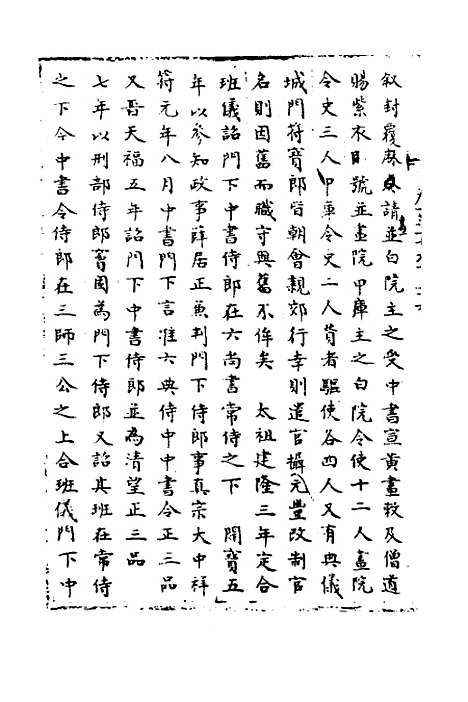 叙封覆麻奏請並白院主之受中書宣黃畫敕及僧道
賜紫衣師號並畫院甲庫主之白院令使十二人畫院
令史三人甲庫令史二人贊者驅使各四人又有典儀
城門符寶郎皆朝會親郊行幸則遣官攝元豐改制官
名則因舊而職守與舊不侔矣　太祖建隆三年定合
班儀詔門下中書侍郎在六尚書常侍之下　開寶五
年以參知政事薛居正兼判門下侍郎事真宗大中祥
符元年八月中書門下言准六典侍中中書令正三品
又晉天福五年詔門下中書侍郎並為清望正三品
七年以刑部侍郎竇固為門下侍郎又詔其班在常侍
之下令中書令侍郎在三師三公之上合班儀門下中